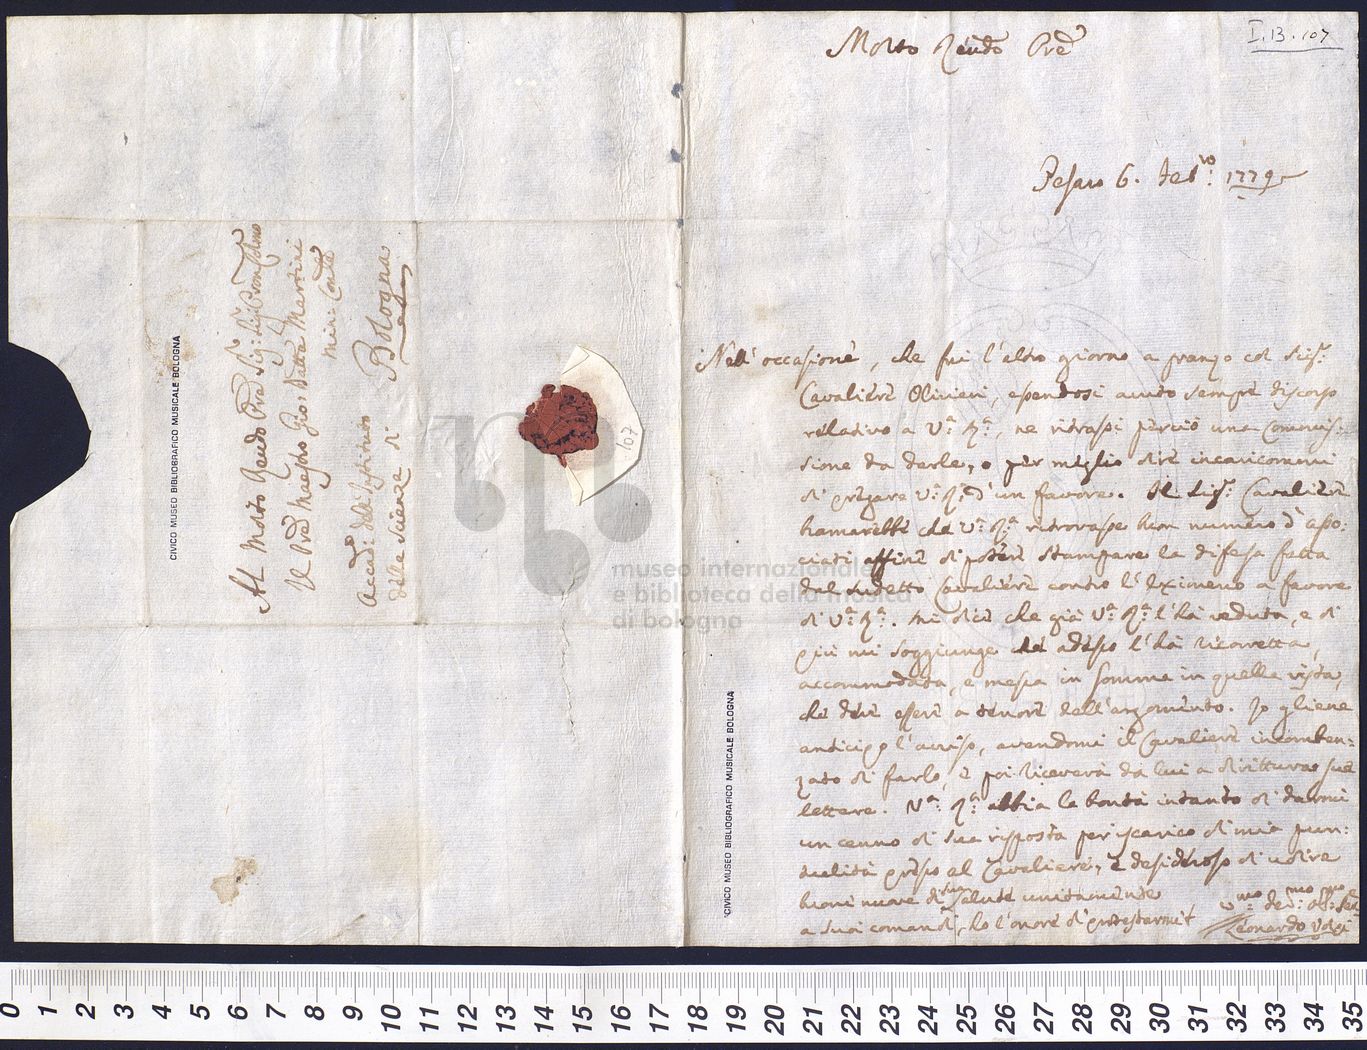 I.B.107
Molto Rendo Pre
Pesaro 6. Feb.ro 1779
Nell' occasione, che fui l'altro giorno a pranzo col Sig.r
Cavaliere Olivieri, essendosi avuto sempre discorso
relativo a V.a R.a ne ritrassi perciò una Commis-
sione da darle, o per meglio dire incaricommi
di pregare V.a R.a d'un favore. Il Sig.r Cavaliere
bramarebbe che V.a R.a ritrovasse buon numero d'asso-
ciati affine di potere stampare la difesa fatta
dal sudetto Cavaliere contro l'Eximeno a favore
di V.a R.a. Mi dice che già V.a R.a l'hà veduta, e di
più mi soggiunge che adesso l'hà ricorretta,
accommodata, e messa in somma in quella vista,
che deve essere a tenore dell'argomento. Io gliene
anticipo l'avviso, avendomi il Cavaliere incomben-
zato di farlo, e poi riceverà da lui a dirittura sue
lettere. V.a R.a abbia la bontà intanto di darmi
un cenno di sua risposta per iscarico di mia pun-
tualità presso al Cavaliere, e desideroso di udire
buone nuove di sua salute unitamente
a suoi comandi, hò l'onore di protestarmi
Leonardo Volpi
Al Molto Rendo Pre Sig.r
Il Pre Maestro Gio: Batta Martini
Min: Conle
Accad: dell'Istituto
delle Scienze di
Bologna
107
CIVICO MUSEO BIBLIOGRAFICO MUSICALE BOLOGNA
CIVICO MUSEO BIBLIOGRAFICO MUSICALE BOLOGNA
museo internazionale
e biblioteca della musica
di bologna
0 1 2 3 4 5 6 7 8 9 10 11 12 13 14 15 16 17 18 19 20 21 22 23 24 25 26 27 28 29 30 31 32 33 34 35